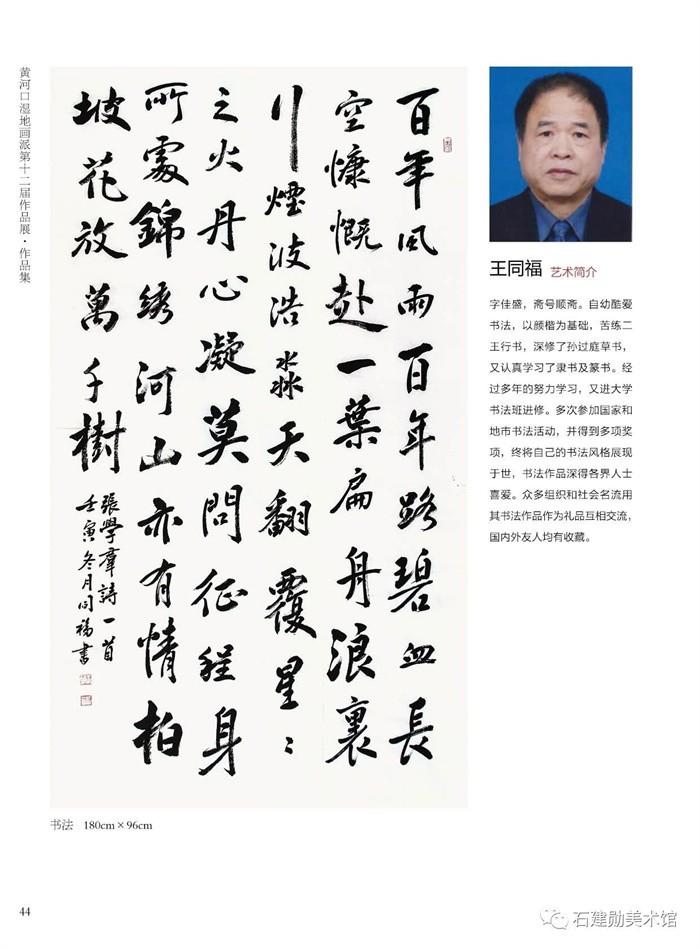 黄河口湿地画派第十二届作品展·作品集
百年风雨百年路碧血長
空慷慨赴一葉扁舟浪裏
川煙波浩淼天翻覆星〻
之火丹心凝莫問征程身
所處錦綉河山亦有情柏
坡花放萬千樹
張學羣詩一首
壬寅冬月同福書
王同福 艺术简介
字佳盛，斋号顺斋。自幼酷爱
书法，以颜楷为基础，苦练二
王行书，深修了孙过庭草书，
又认真学习了隶书及篆书。经
过多年的努力学习，又进大学
书法班进修。多次参加国家和
地市书法活动，并得到多项奖
项，终将自己的书法风格展现
于世，书法作品深得各界人士
喜爱。众多组织和社会名流用
其书法作品作为礼品互相交流，
国内外友人均有收藏。
书法 180cm×96cm
44
石建勋美术馆